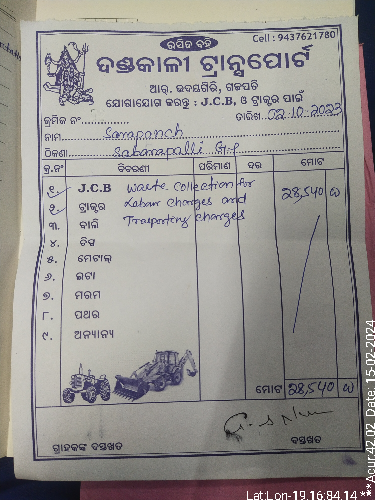 ରସିଦ ବହି
Cell : 9437621780
ଦଣ୍ଡକାଳୀ ଟ୍ରାନ୍ସପୋର୍ଟ
ଆର୍. ଉଦୟଗିରି, ଗଜପତି
ଯୋଗାଯୋଗ କରନ୍ତୁ : J.C.B, ଓ ଟ୍ରାକ୍ଟର ପାଇଁ
କ୍ରମିକ ନଂ............... ତାରିଖ 02.10.2023
ନାମ Sarapanch
ଠିକଣା Sabarapalli G.P
କ୍ର.ନଂ ବିବରଣୀ ପରିମାଣ ଦର ମୋଟ
୧. J.C.B Waste collection for 28,540
୨. ଟ୍ରାକ୍ଟର Labour charges and
୩. ବାଲି Trasporting charges
୪. ଚିପ୍ସ
୫. ମେଟାଲ୍
୬. ଇଟା
୭. ମରମ
୮. ପଥର
୯. ଅନ୍ୟାନ୍ୟ
ମୋଟ 28,540
ଗ୍ରାହକଙ୍କ ଦସ୍ତଖତ ଦସ୍ତଖତ
Lat:Lon-19.16:84.14 ***Acur:42.02 Date: 15-02-2024